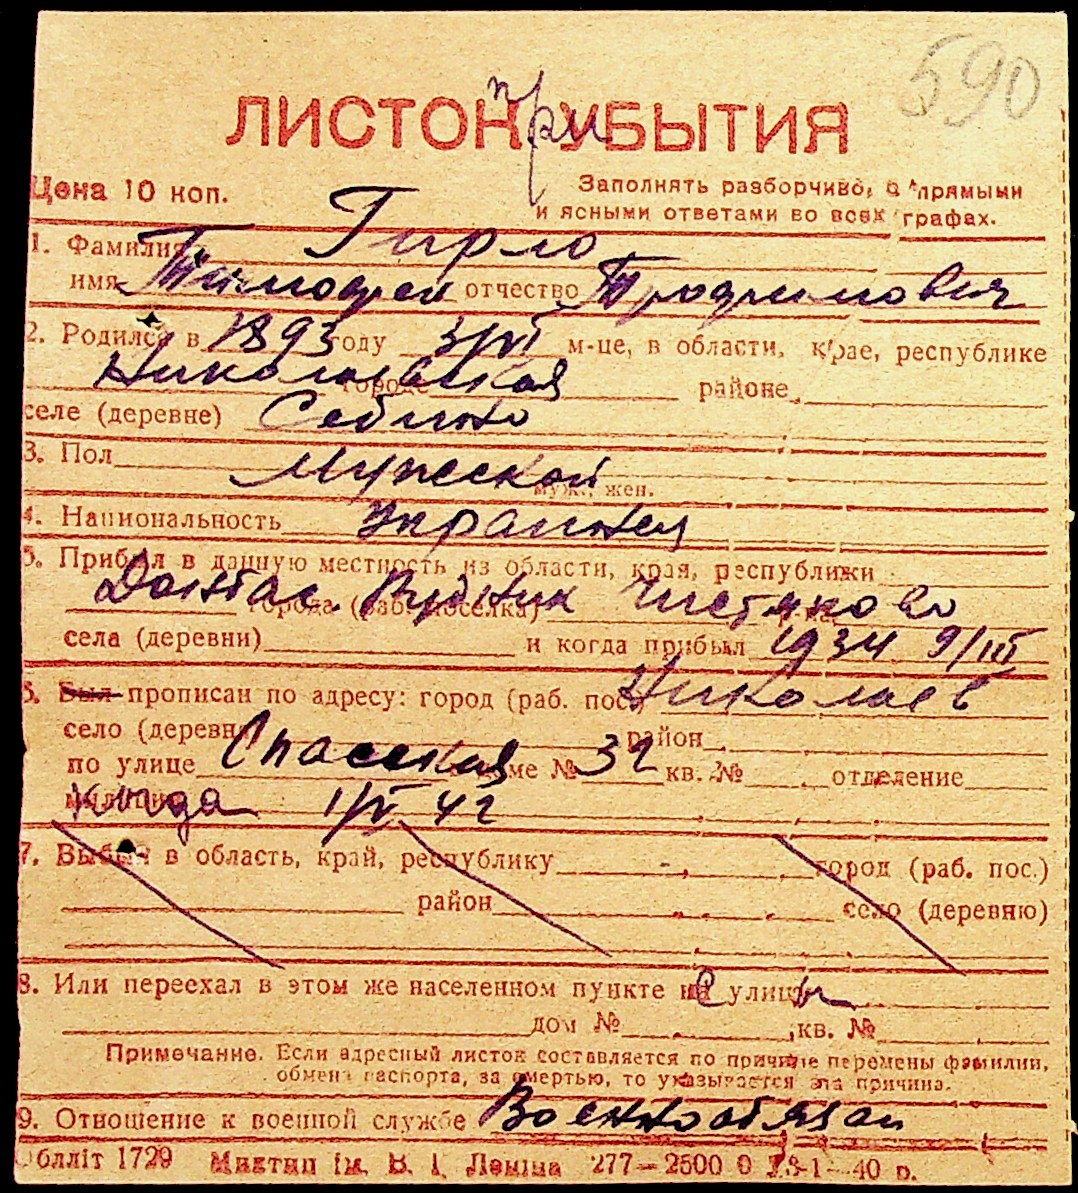 590
ЛИСТОК при УБЫТИЯ
Цена 10 коп.
Заполнять разборчиво, прямыми
и ясными ответами во всех графах.
1. Фамилия Гирло
имя Тимофей отчество Трофимович
2. Родился в 1893 году 3/VI м-це, в области, крае, республике
Николаевская городе районе
селе (деревне) Себино
3. Пол Мужской
муж., жен.
4. Национальность Украинец
5. Прибыл в данную местность из области, края, республики
Донбас. Рудник Чистяково
города (раб. поселка)
села (деревни) и когда прибыл 1934 9/III
6. Был прописан по адресу: город (раб. пос.) Николаев
село (деревня) район
по улице Спасская доме № 32 кв. № отделение
милиции Когда 1/VI 42
7. Выбыл в область, край, республику город (раб. пос.)
район село (деревню)
8. Или переехал в этом же населенном пункте на улицу
дом № кв. №
Примечание. Если адресный листок составляется по причине перемены фамилии,
обмена паспорта, за смертью, то указывается эта причина.
9. Отношение к военной службе Военнообязан
Облліт 1729 Миктип ім. В. І. Леніна 277—2500 0 13-1—40 р.